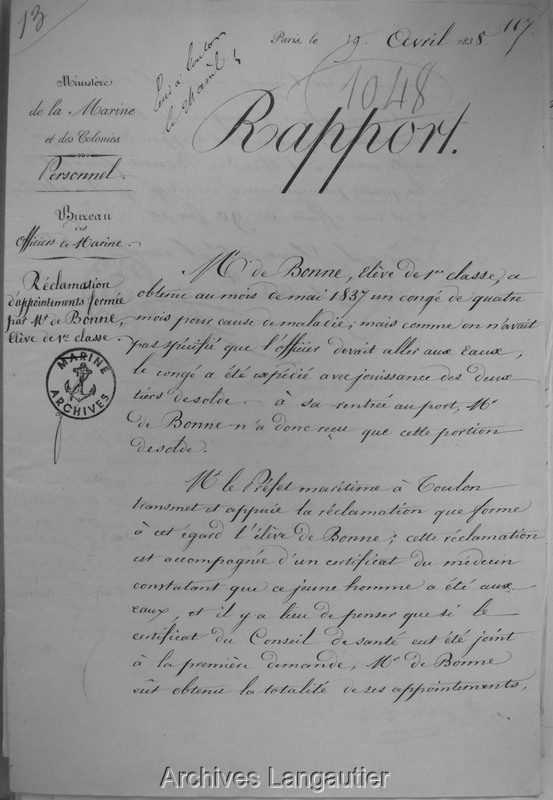 13
Paris, le 19 Avril 1838. 117.
le 24 avril
1048
Rapport.
Ministère
de la Marine
et des Colonies
Personnel.
Bureau
des
Officiers de Marine.
Réclamation
d'appointements formée
par Mr de Bonne,
Elève de 1re classe.
MARINE
ARCHIVES
Mr de Bonne, Elève de 1re classe, a
obtenu au mois de mai 1837 un congé de quatre
mois pour cause de maladie; mais comme on n'avait
pas spécifié que l'officier devait aller aux Eaux,
le congé a été expédié avec jouissance des deux
tiers de solde. à sa rentrée au port, Mr
de Bonne n'a donc reçu que cette portion
de solde.
Mr le Préfet maritime à Toulon
transmet et appuie la réclamation que forme
à cet égard l'élève de Bonne; cette réclamation
est accompagnée d'un certificat du médecin
constatant que ce jeune homme a été aux
eaux, et il y a lieu de penser que si le
certificat du Conseil de santé eut été joint
à la première demande, Mr de Bonne
eût obtenu la totalité de ses appointements,
Archives Langautier